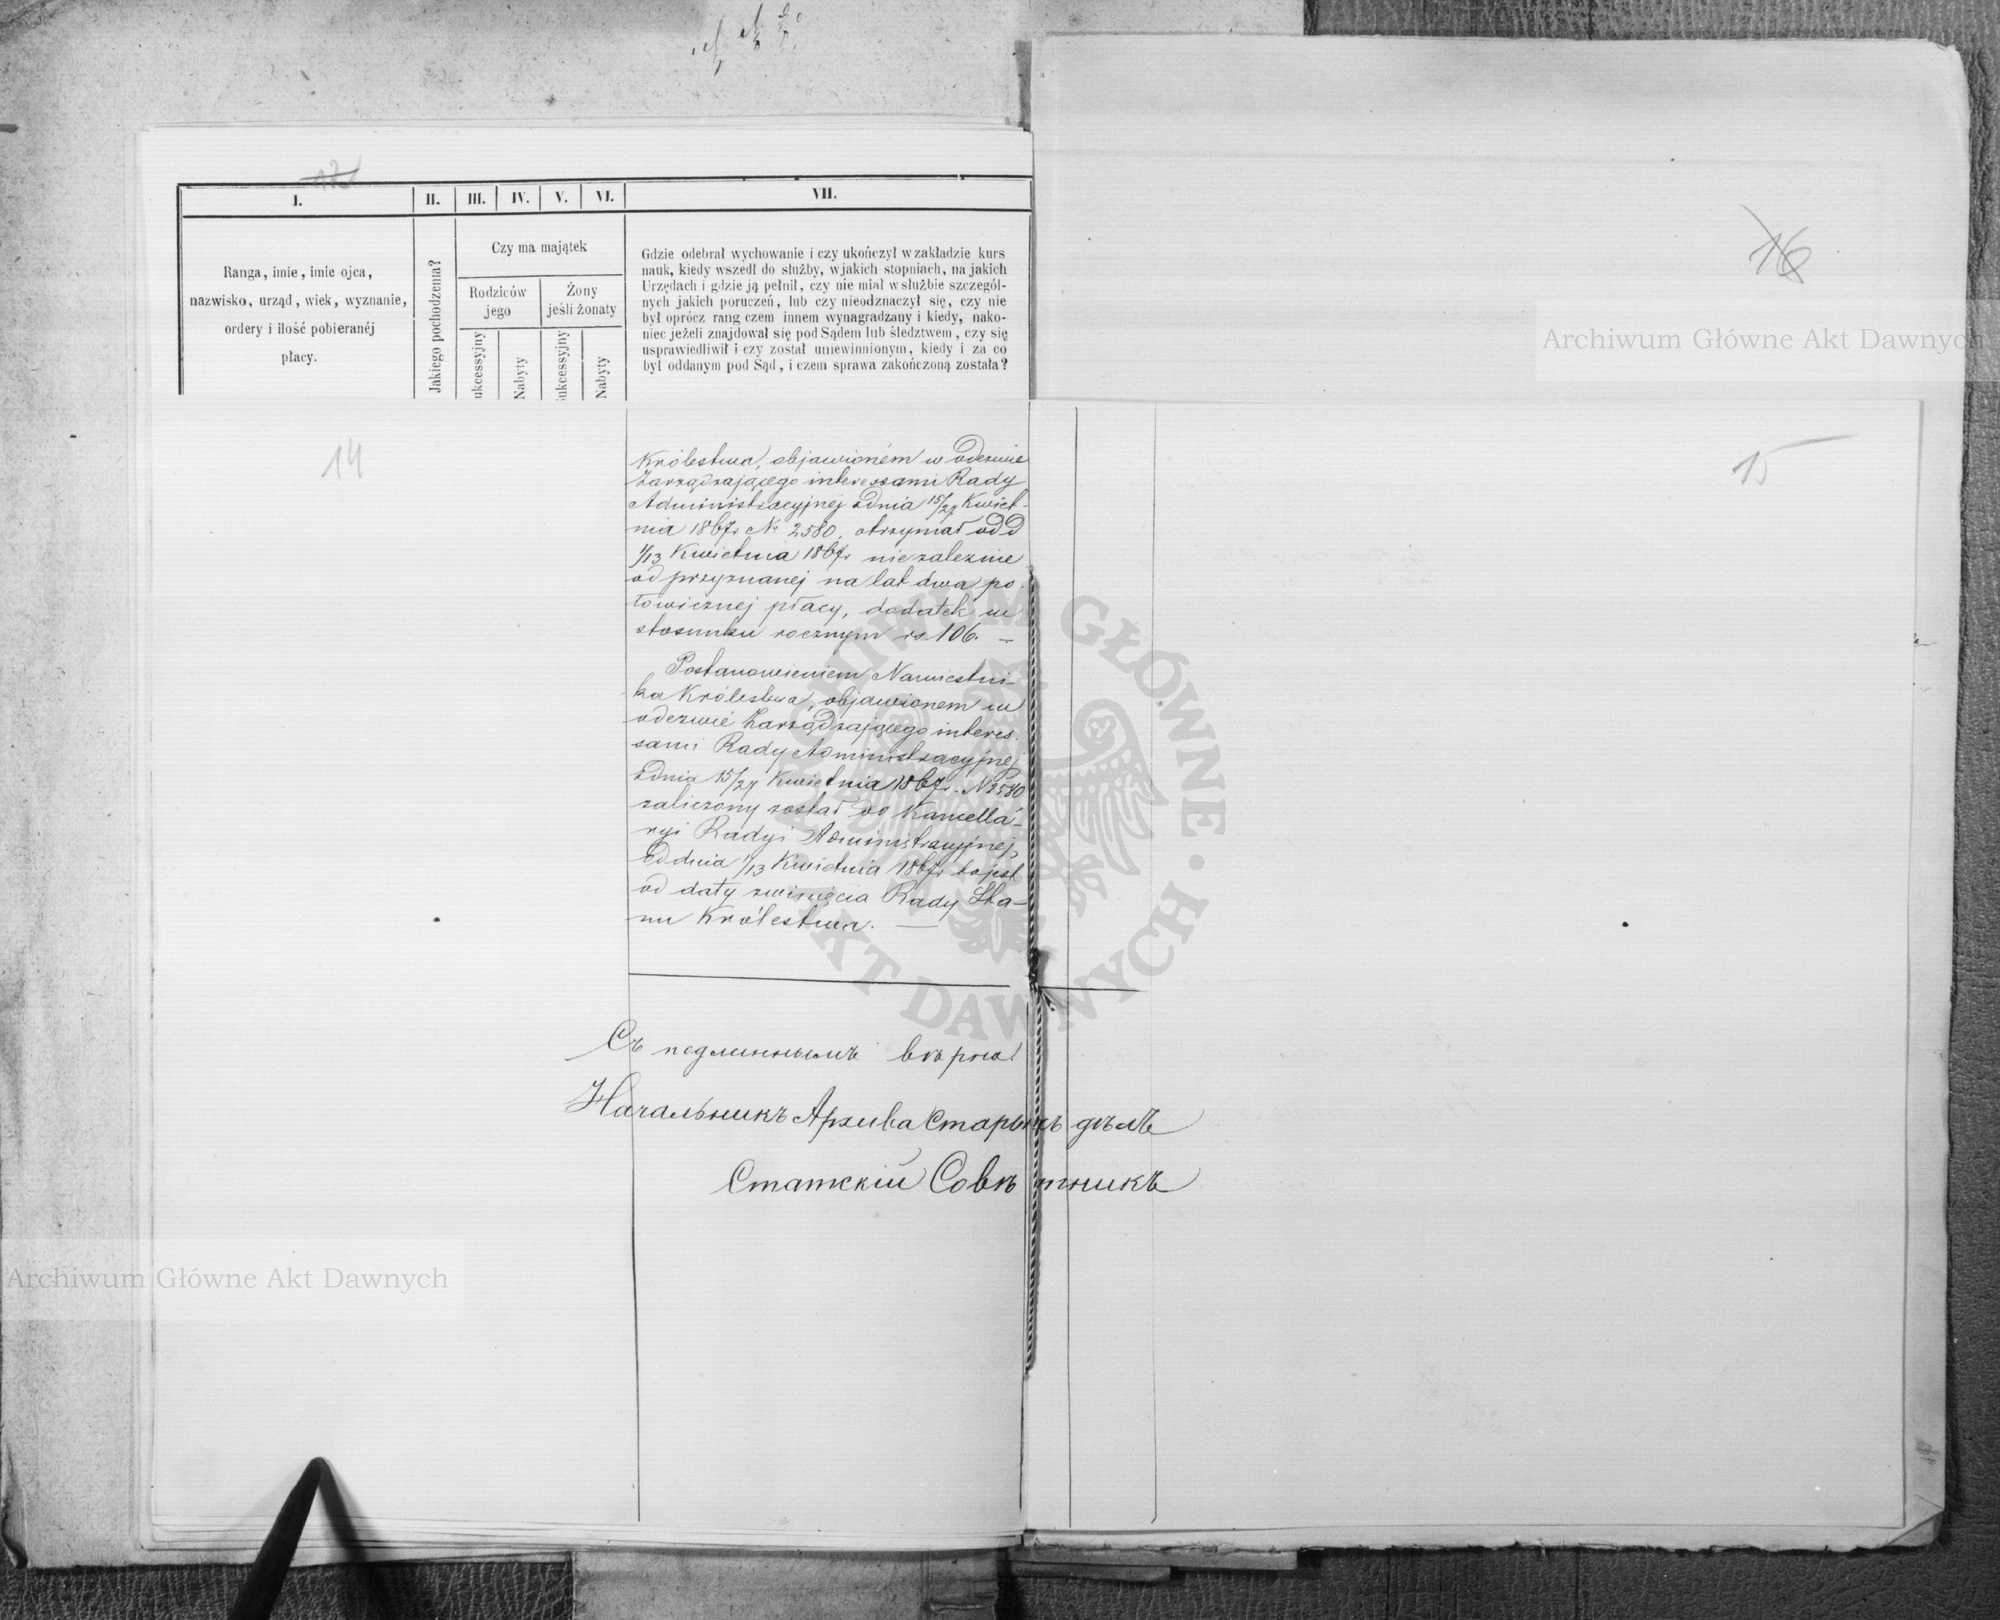 12
I.
II.
III.
IV.
V.
VI.
VII.
Ranga, imie, imie ojca,
nazwisko, urząd, wiek, wyznanie,
ordery i ilość pobieranéj
płacy.
Jakiego pochodzenia?
Czy ma majątek
Rodziców
jego
Żony
jeśli żonaty
ukcessyjny
Nabyty
ukcessyjny
Nabyty
Gdzie odebrał wychowanie i czy ukończył w zakładzie kurs
nauk, kiedy wszedł do służby, w jakich stopniach, na jakich
Urzędach i gdzie ją pełnił, czy nie miał w służbie szczegól-
nych jakich poruczeń, lub czy nieodznaczył się, czy nie
był oprócz rang czem innem wynagradzany i kiedy, nako-
niec jeżeli znajdował się pod Sądem lub śledztwem, czy się
usprawiedliwił i czy został uniewinnionym, kiedy i za co
był oddanym pod Sąd, i czem sprawa zakończoną została?
14
Królestwa, objawioném w odezwie
Zarządzającego interessami Rady
Administracyjnej z dnia 15/27 Kwiet-
nia 1867r № 2580, otrzymał od d
1/13 Kwietnia 1867r niezależnie
od przyznanej na lat dwa po-
łowicznej płacy, dodatek w
stosunku rocznym rs 106. —
Postanowieniem Namiestni-
ka Królestwa, objawionem w
odezwie Zarządzającego interes-
sami Rady Administracyjnej
z dnia 15/27 Kwietnia 1867r. N 2580
zaliczony został do Kancella-
ryi Rady Administracyjnej,
od dnia 1/13 Kwietnia 1867r to jest
od daty zwinięcia Rady Sta-
nu Królestwa. —
Съ подлиннымъ вѣрно!
Начальникъ Архива Старыхъ дѣлъ
Статскій Совѣтникъ
16
15
Archiwum Główne Akt Dawnych
Archiwum Główne Akt Dawnych
ARCHIWUM GŁÓWNE · AKT DAWNYCH ·